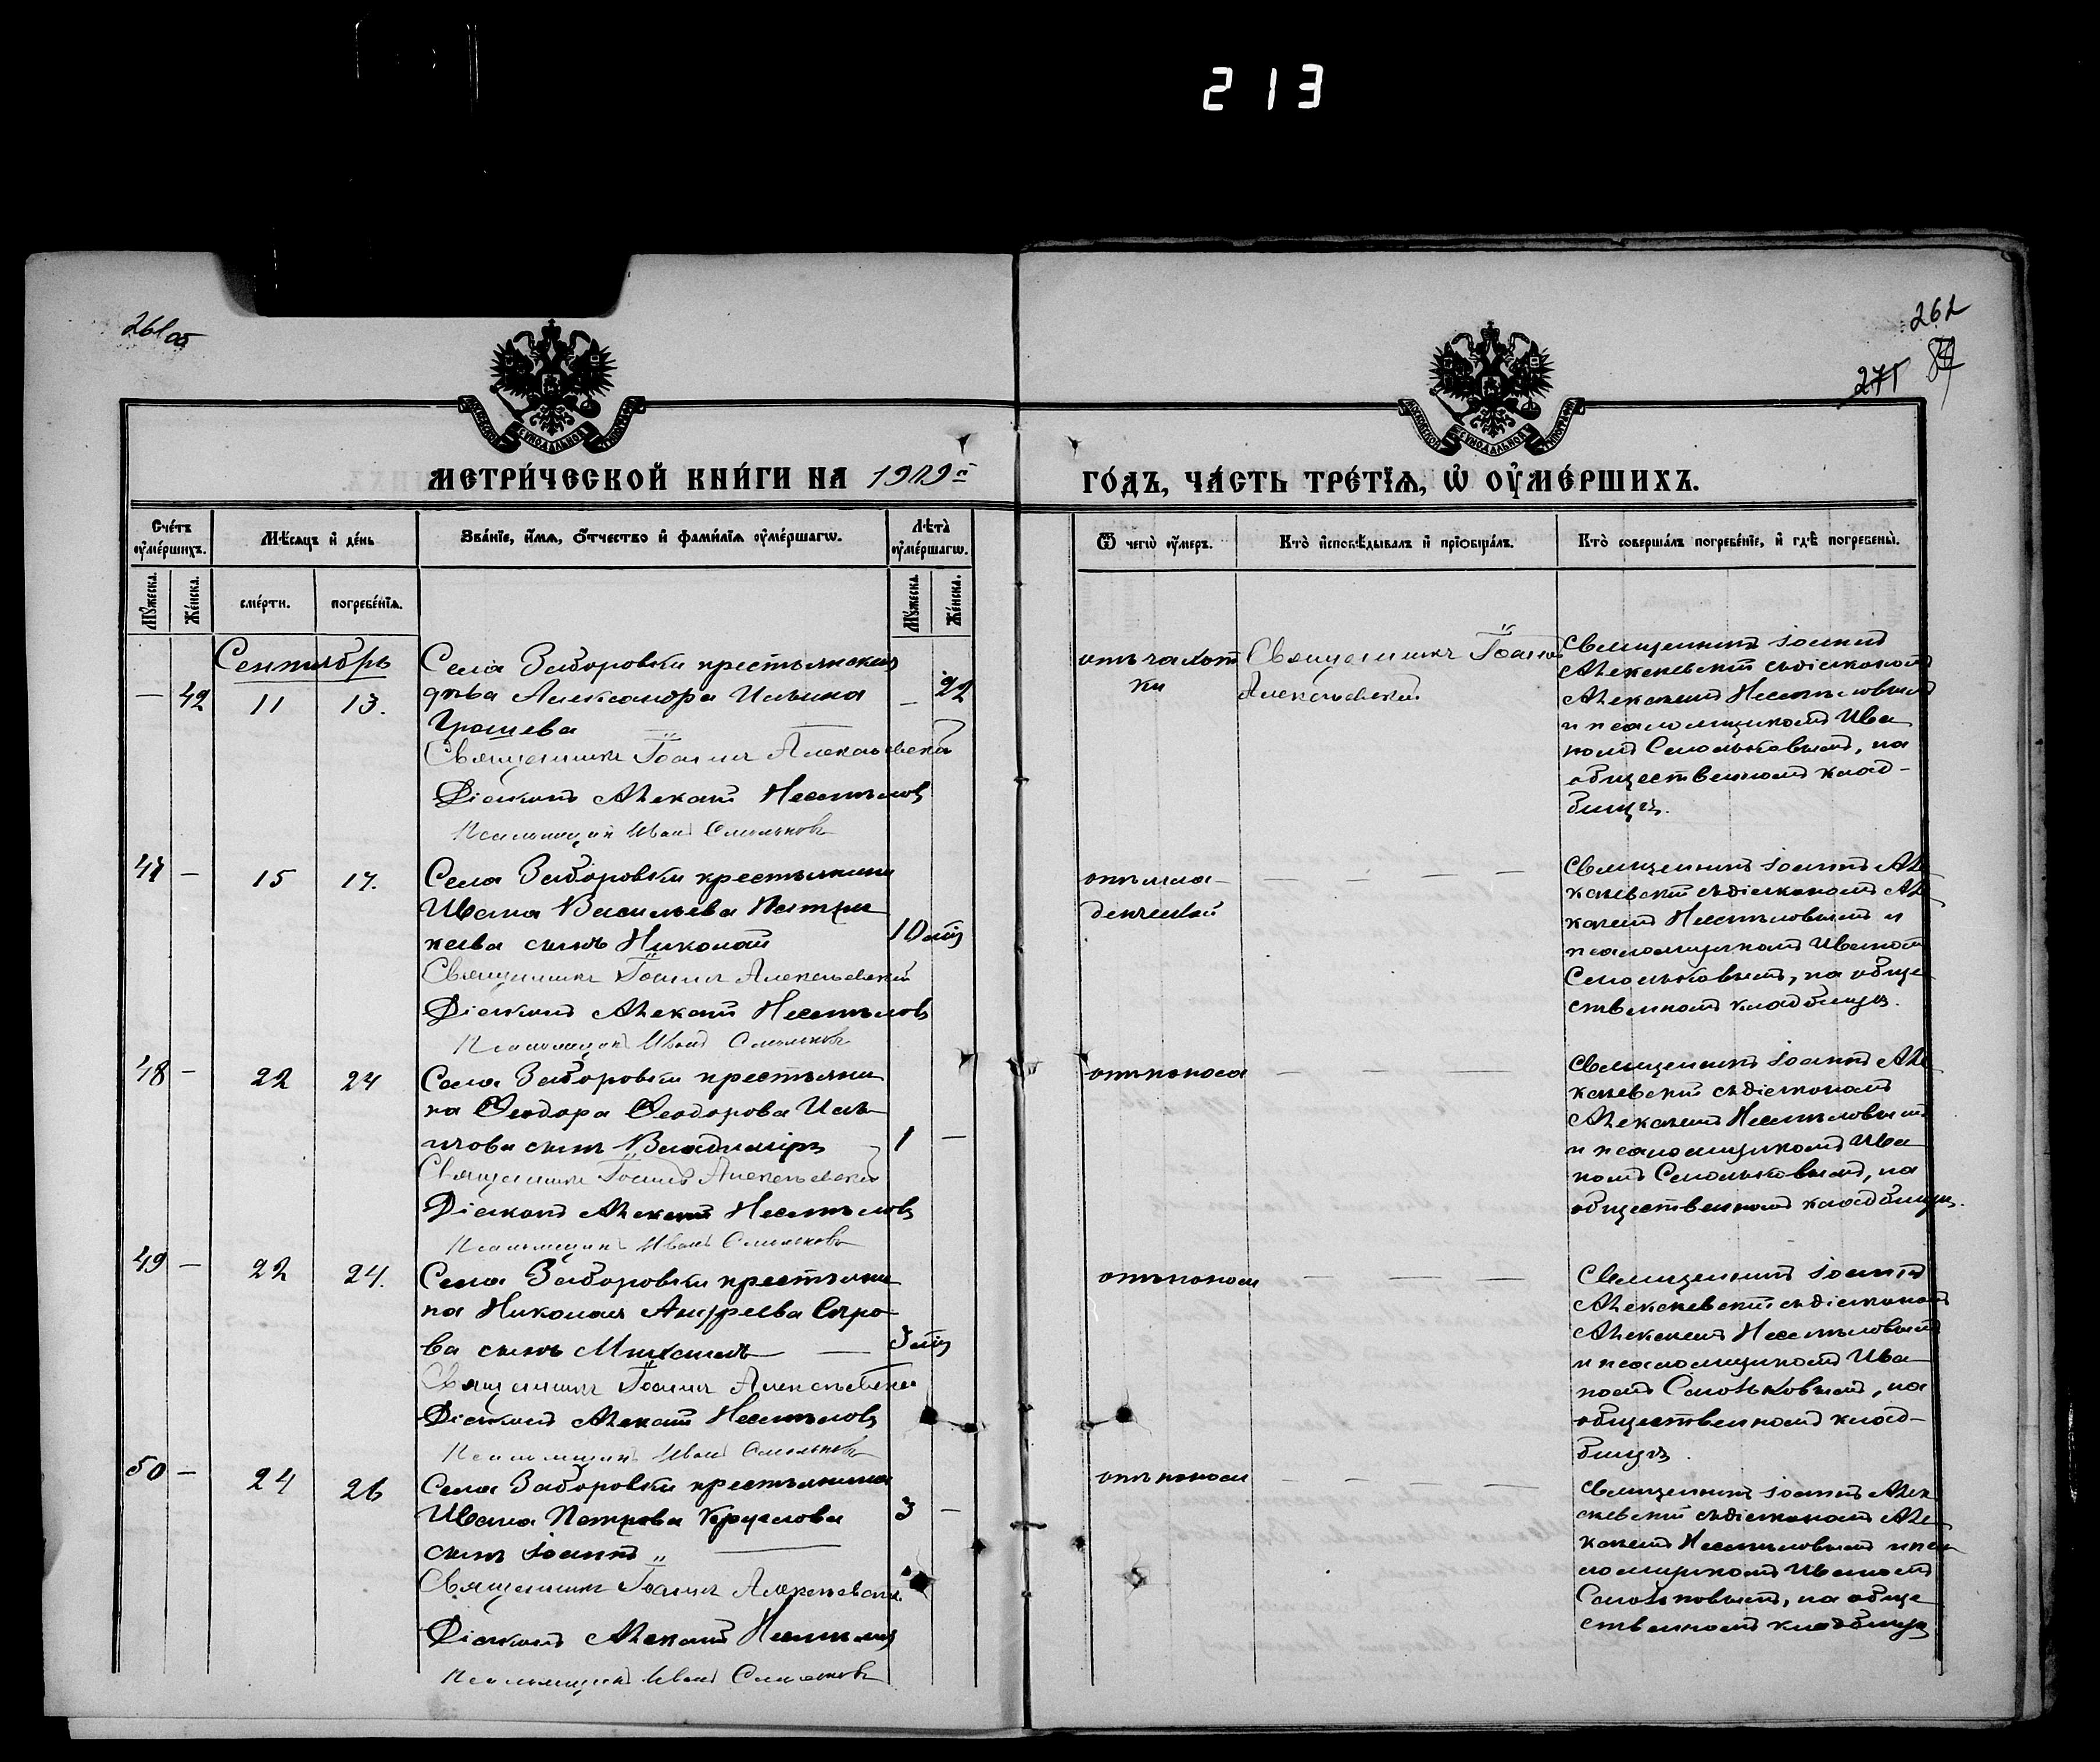 213
261об
262
271
МОСКОВСКОЙ СѴНОДАЛЬНОЙ ТИПОГРАФІИ
МОСКОВСКОЙ СѴНОДАЛЬНОЙ ТИПОГРАФІИ
МЕТРИ́ЧЕСКОЙ КНИ́ГИ НА 1909й
ГО́ДЪ, ЧА́СТЬ ТРЕ́ТЇѦ, Ѡ҆ ОУ҆МЕ́РШИХЪ.
Сче́тъ оу҆ме́ршихъ.
Мѣ́сяцъ и҆ де́нь
Зва́нїе, и҆́мѧ, ѻ҆́тчество и҆ фами́лїѧ оу҆ме́ршагѡ.
Лѣ́та̀ оу҆ме́ршагѡ.
Ѿ чегѡ̀ оу҆́меръ.
Кто̀ и҆сповѣ́дывалъ и҆ прїѡбща́лъ.
Кто̀ соверша́лъ погребе́нїе, и҆ гдѣ̀ погребены̀.
Мꙋ́жеска. Же́нска. сме́рти. погребе́нїѧ. Мꙋ́жеска. Же́нска.
Сентябрь
— 42 11 13. — 22
Села Заборовки крестьянская
дѣва Александра Ильина
Грошева
Священникъ Іоаннъ Алексѣевскій
Діаконъ Алексѣй Несмѣловъ
Псаломщикъ Иванъ Смольковъ
отъ чахот
ки
Священникъ Іоаннъ
Алексѣевскій
Священникъ Іоаннъ
Алексѣевскій съ діакономъ
Алексѣемъ Несмѣловымъ
и псаломщикомъ Ива
номъ Смольковымъ, на
общественномъ клад-
бищѣ.
47 — 15 17. 10 мц
Села Заборовки крестьянина
Ивана Васильева Патри
кеева сынъ Николай
Священникъ Іоаннъ Алексѣевскій
Діаконъ Алексѣй Несмѣловъ
Псаломщикъ Иванъ Смольковъ
отъ мла-
денческой
— — — —
Священникъ Іоаннъ Але
ксѣевскій съ діакономъ Але
ксѣемъ Несмѣловымъ и
псаломщикомъ Иваномъ
Смольковымъ, на обще
ственномъ кладбищѣ.
48 — 22 24 1 —
Села Заборовки крестьяни
на Ѳеодора Ѳеодорова Иль
ичова сынъ Владиміръ
Священникъ Іоаннъ Алексѣевскій
Діаконъ Алексѣй Несмѣловъ
Псаломщикъ Иванъ Смольковъ
отъ поноса
— — —
Священникъ Іоаннъ Але
ксѣевскій съ діакономъ
Алексѣемъ Несмѣловымъ
и псаломщикомъ Ива
номъ Смольковымъ, на
общественномъ кладбищѣ.
49 — 22 24. 3 мц
Села Заборовки крестьяни
на Николая Андреева Сыро-
ва сынъ Михаилъ —
Священникъ Іоаннъ Алексѣевскій
Діаконъ Алексѣй Несмѣловъ
Псаломщикъ Иванъ Смольковъ
отъ поноса
— — —
Священникъ Іоаннъ
Алексѣевскій съ діакономъ
Алексѣемъ Несмѣловымъ
и псаломщикомъ Ива
номъ Смольковымъ, на
общественномъ клад-
бищѣ.
50 — 24 26 3 —
Села Заборовки крестьянина
Ивана Петрова Круглова
сынъ Іоаннъ
Священникъ Іоаннъ Алексѣевскій
Діаконъ Алексѣй Несмѣловъ
Псаломщикъ Иванъ Смольковъ
отъ поноса
— — —
Священникъ Іоаннъ Алек
сѣевскій съ діакономъ Але
ксѣемъ Несмѣловымъ и пса
ломщикомъ Иваномъ
Смольковымъ, на обще
ственномъ кладбищѣ